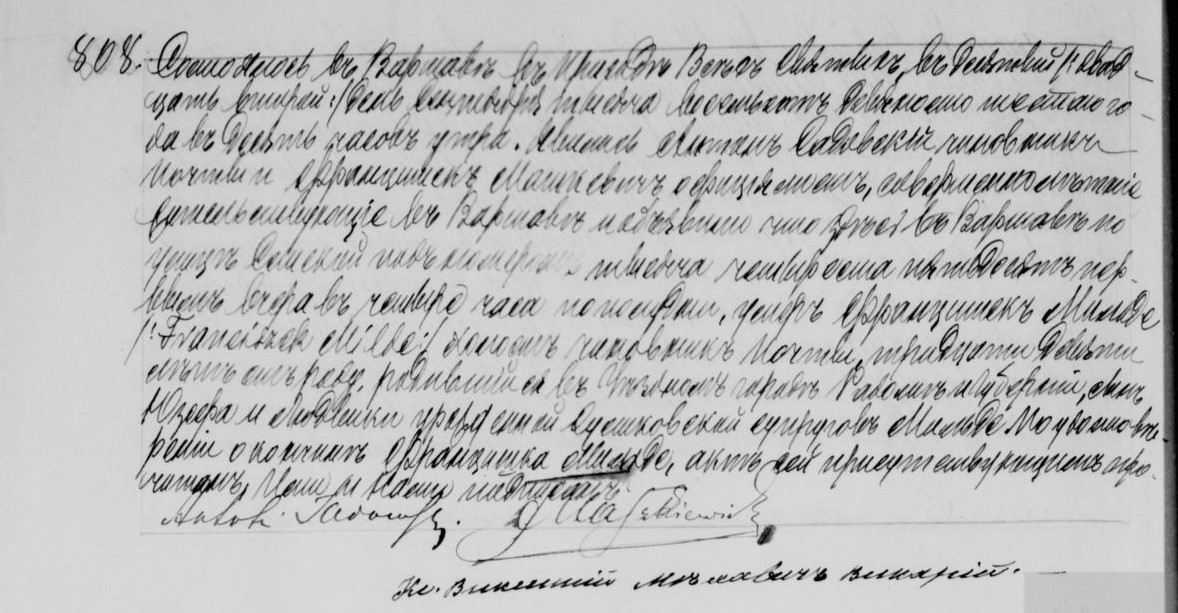 808. Состоялось въ Варшавѣ въ приходѣ Всѣхъ Святыхъ, въ десятый /: двад-
цать второй :/ день Сентября тысяча восемьсотъ девяносто шестаго го
да въ десять часовъ утра. Явились Антонъ Садовскій чиновникъ
почты и Францишекъ Машкевичъ официялистъ, совершеннолѣтніе
жительствующіе въ Варшавѣ и объявили что здѣсь въ Варшавѣ по
улицѣ подъ номеромъ тысяча четыреста пятьдесятъ пер-
вымъ вчера въ четыре часа пополудни, умеръ Францишекъ Мильде
/: Franciszek Milde :/ холостъ чиновникъ почты, тридцати девяти
лѣтъ отъ роду, родившійся въ уѣздномъ городѣ губерніи, сынъ
Юзефа и Людвики урожденной супруговъ Мильде. По удостовѣ-
реніи о кончинѣ Францишка Мильде, актъ сей присутствующимъ про-
читанъ, Нами и ими подписанъ.
Antoni Sadowski. FMaszkiewicz
Кс. Викентій викарій.